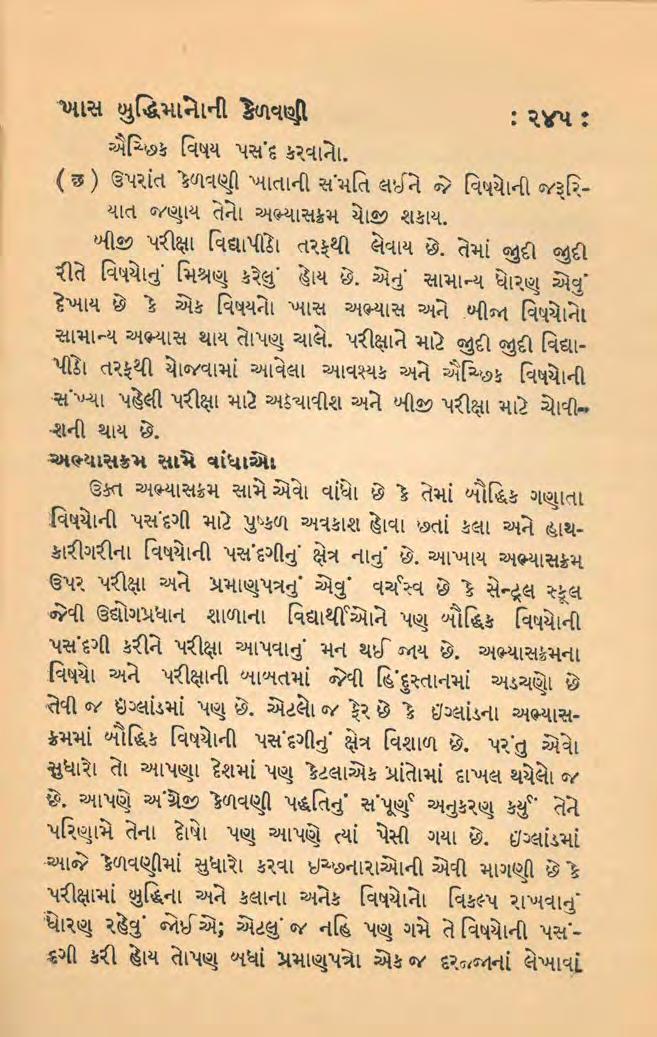 ખાસ બુદ્ધિમાનોની કેળવણી : ૨૪૫ :
ઐચ્છિક વિષય પસંદ કરવાનો.
( છ ) ઉપરાંત કેળવણી ખાતાની સંમતિ લઈને જે વિષયોની જરૂરિ-
યાત જણાય તેનો અભ્યાસક્રમ યોજી શકાય.
બીજી પરીક્ષા વિદ્યાપીઠો તરફથી લેવાય છે. તેમાં જુદી જુદી
રીતે વિષયોનું મિશ્રણ કરેલું હોય છે. એનું સામાન્ય ધોરણ એવું
દેખાય છે કે એક વિષયનો ખાસ અભ્યાસ અને બીજા વિષયોનો
સામાન્ય અભ્યાસ થાય તોપણ ચાલે. પરીક્ષાને માટે જુદી જુદી વિદ્યા-
પીઠો તરફથી યોજવામાં આવેલા આવશ્યક અને ઐચ્છિક વિષયોની
સંખ્યા પહેલી પરીક્ષા માટે અઠ્યાવીશ અને બીજી પરીક્ષા માટે ચોવી-
શની થાય છે.
અભ્યાસક્રમ સામે વાંધાઓ
ઉક્ત અભ્યાસક્રમ સામે એવો વાંધો છે કે તેમાં બૌદ્ધિક ગણાતા
વિષયોની પસંદગી માટે પુષ્કળ અવકાશ હોવા છતાં કલા અને હાથ-
કારીગરીના વિષયોની પસંદગીનું ક્ષેત્ર નાનું છે. આખાય અભ્યાસક્રમ
ઉપર પરીક્ષા અને પ્રમાણપત્રનું એવું વર્ચસ્વ છે કે સેન્ટ્રલ સ્કૂલ
જેવી ઉદ્યોગપ્રધાન શાળાના વિદ્યાર્થીઓને પણ બૌદ્ધિક વિષયોની
પસંદગી કરીને પરીક્ષા આપવાનું મન થઈ જાય છે. અભ્યાસક્રમના
વિષયો અને પરીક્ષાની બાબતમાં જેવી હિંદુસ્તાનમાં અડચણો છે
તેવી જ ઇંગ્લાંડમાં પણ છે. એટલો જ ફેર છે કે ઇંગ્લાંડના અભ્યાસ-
ક્રમમાં બૌદ્ધિક વિષયોની પસંદગીનું ક્ષેત્ર વિશાળ છે. પરંતુ એવો
સુધારો તો આપણા દેશમાં પણ કેટલાએક પ્રાંતોમાં દાખલ થયેલો જ
છે. આપણે અંગ્રેજી કેળવણી પદ્ધતિનું સંપૂર્ણ અનુકરણ કર્યું તેને
પરિણામે તેના દોષો પણ આપણે ત્યાં પેસી ગયા છે. ઇંગ્લાંડમાં
આજે કેળવણીમાં સુધારો કરવા ઇચ્છનારાઓની એવી માગણી છે કે
પરીક્ષામાં બુદ્ધિના અને કલાના અનેક વિષયોનો વિકલ્પ રાખવાનું
ધોરણ રહેવું જોઈએ; એટલું જ નહિ પણ ગમે તે વિષયોની પસં-
દગી કરી હોય તોપણ બધાં પ્રમાણપત્રો એક જ દરજ્જાનાં લેખાવાં